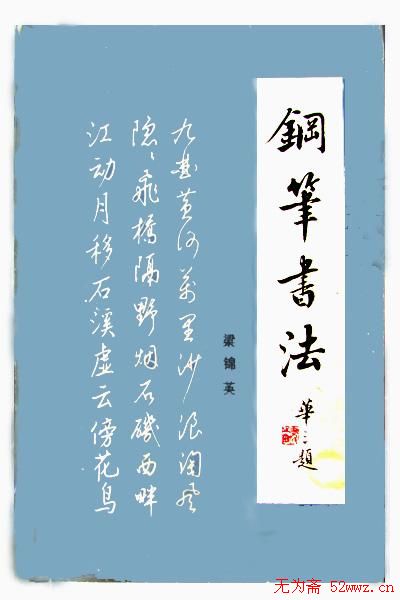 鋼筆書法
華三題
梁锦英
九曲黄河萬里沙浪淘风
隐隐飛橋隔野烟石磯西畔
江动月移石溪虚云傍花鸟
无为斋 52wwz.cn